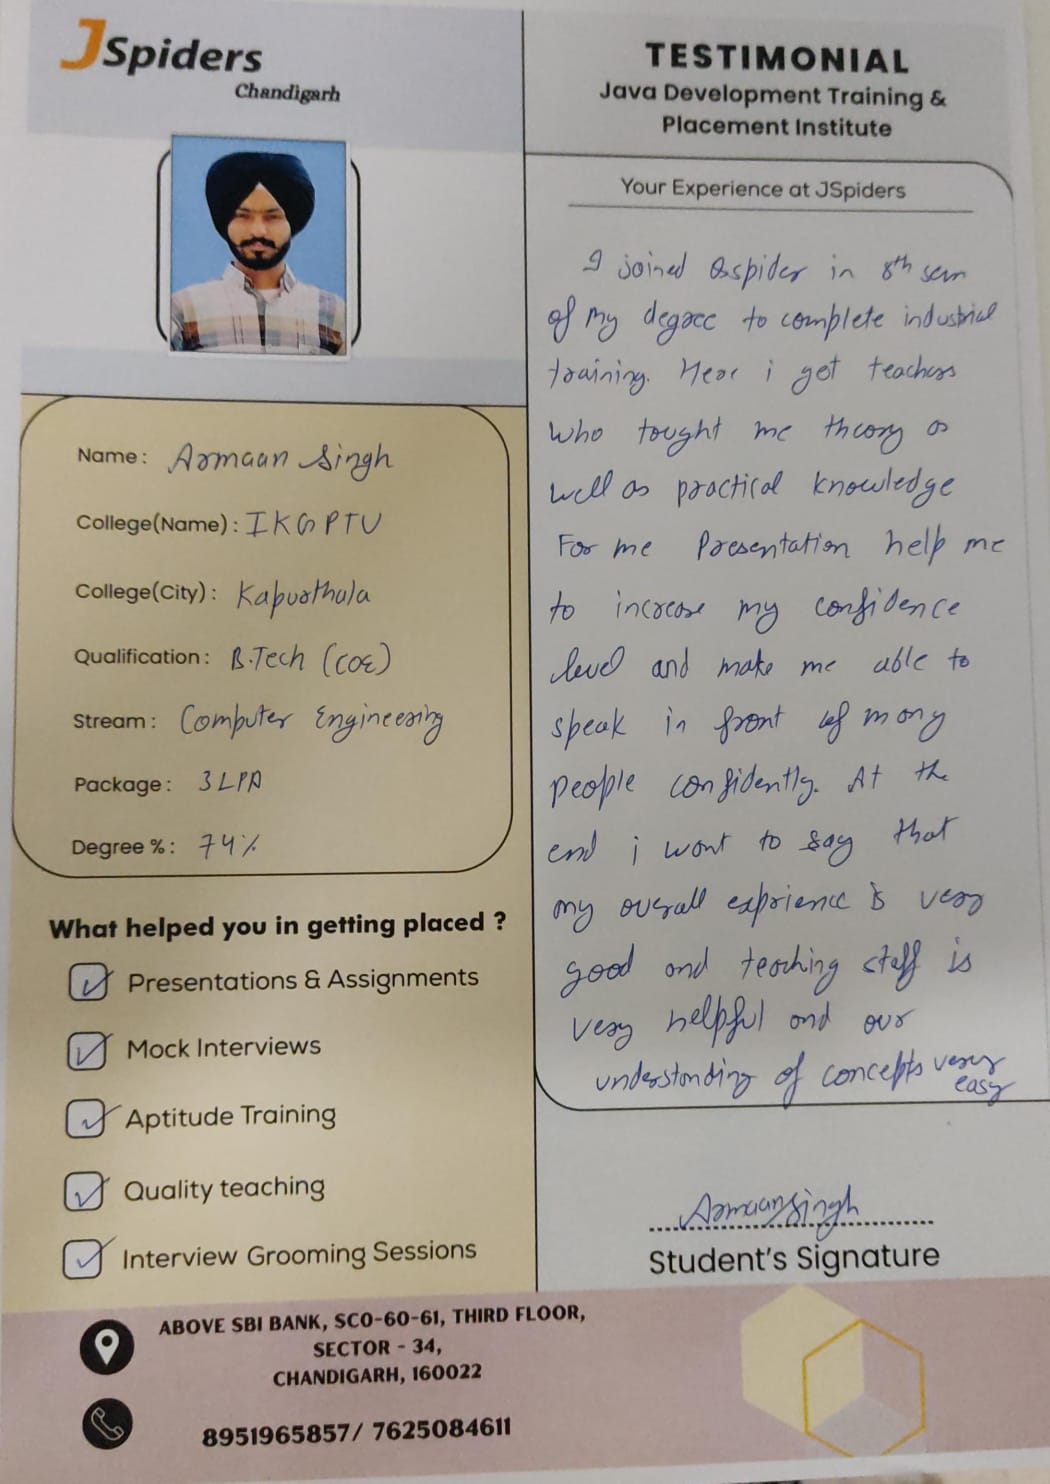 JSpiders
Chandigarh
Name: Armaan Singh
College(Name): IKGPTU
College(City): Kapurthala
Qualification: B.Tech (COE)
Stream: Computer Engineering
Package: 3 LPA
Degree %: 74%
What helped you in getting placed ?
Presentations & Assignments
Mock Interviews
Aptitude Training
Quality teaching
Interview Grooming Sessions
TESTIMONIAL
Java Development Training &
Placement Institute
Your Experience at JSpiders
I joined Qspider in 8th sem
of my degree to complete industrial
training. Here i get teachers
who tought me theory as
well as practical knowledge
For me Presentation help me
to increase my confidence
level and make me able to
speak in front of many
people confidently. At the
end i want to say that
my overall exprience is very
good and teaching staff is
very helpful and our
understanding of concepts very
easy
Armaansingh
Student's Signature
ABOVE SBI BANK, SCO-60-61, THIRD FLOOR,
SECTOR - 34,
CHANDIGARH, 160022
8951965857/ 7625084611